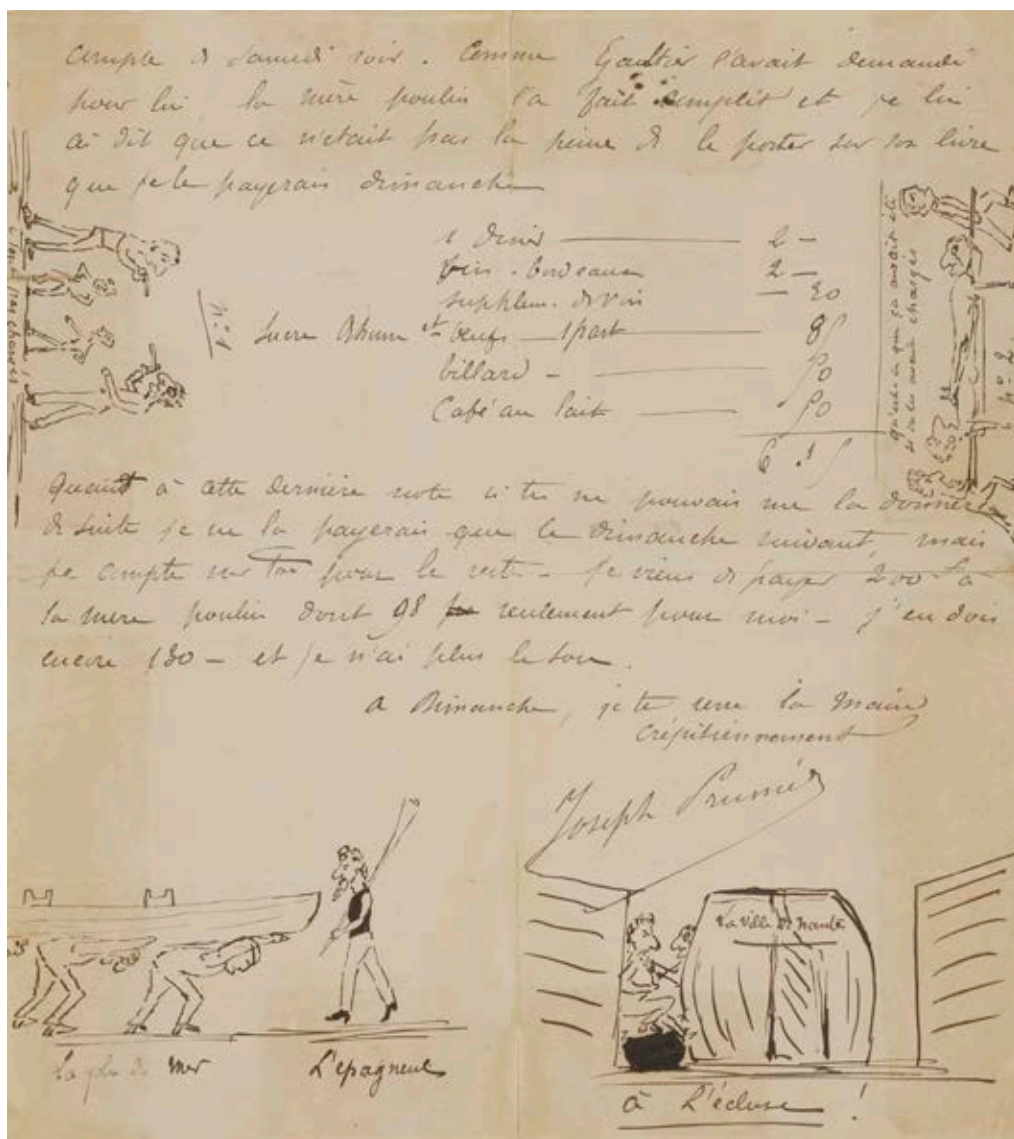 compte de samedi soir. Comme Gaultier l'avait demandé
pour lui la mère poulin l'a fait et je lui
ai dit que ce n'était pas la peine de le porter sur son livre
que je le payerais dimanche
1 diner — 2 —
vin - bordeaux 2 —
supplem. de vin — 20
Sucre Rhum et œufs — 1 part — 85
billard - — 50
Café au lait — 50
6 . 
Quant à cette dernière note si tu ne pouvais me la donner
de suite je ne la payerais que le Dimanche suivant, mais
je compte sur toi pour le reste - je viens de payer 200 f à
la mère poulin dont 98 seulement pour moi - j'en dois
encore 130 - et je n'ai plus le sou.
a Dimanche, je te serre la main
Crépitiennement
Joseph Prunier
n°1
pas chargés
qu'est-ce que ça aurait été
si on les avait chargés
n° 2.
La de mer
L'épagneul
La Ville de Nantes
à L'écluse !